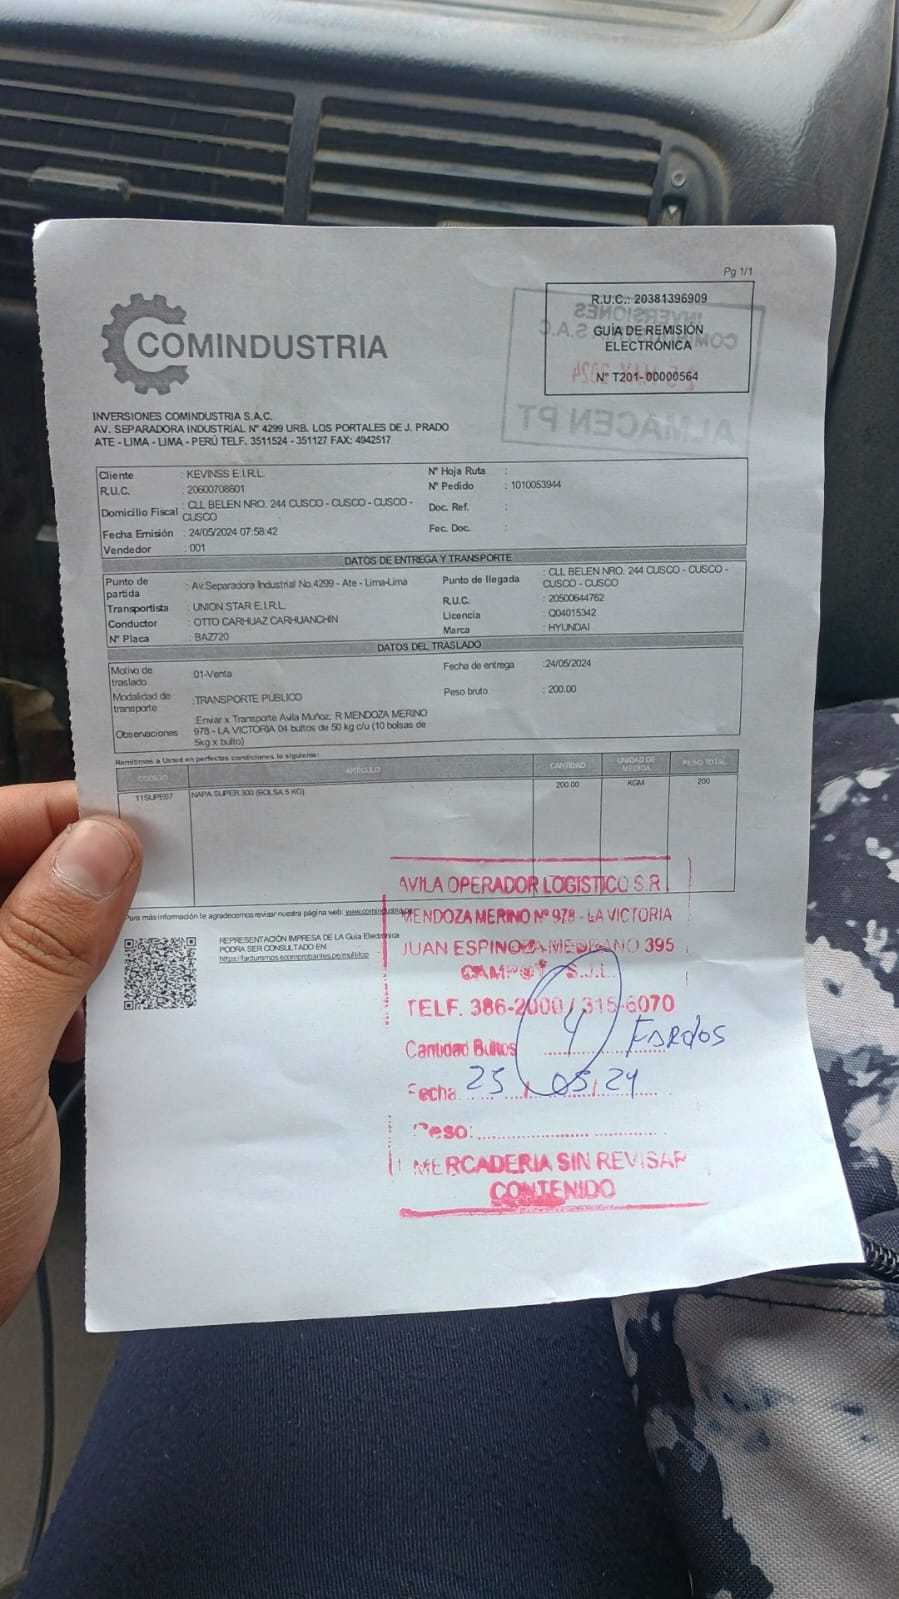 Pg 1/1
COMINDUSTRIA
R.U.C.: 20381396909
GUÍA DE REMISIÓN
ELECTRÓNICA
N° T201- 00000564
INVERSIONES
COMINDUSTRIA S.A.C
25 MAY 2024
ALMACEN PT
INVERSIONES COMINDUSTRIA S.A.C.
AV. SEPARADORA INDUSTRIAL N° 4299 URB. LOS PORTALES DE J. PRADO
ATE - LIMA - LIMA - PERÚ TELF. 3511524 - 351127 FAX: 4942517
Cliente : KEVINSS E.I.R.L.
R.U.C. : 20600708601
Domicilio Fiscal : CLL BELEN NRO. 244 CUSCO - CUSCO - CUSCO -
CUSCO
Fecha Emisión : 24/05/2024 07:58:42
Vendedor : 001
N° Hoja Ruta :
N° Pedido : 1010053944
Doc. Ref. :
Fec. Doc. :
DATOS DE ENTREGA Y TRANSPORTE
Punto de
partida : Av.Separadora Industrial No.4299 - Ate - Lima-Lima
Transportista : UNION STAR E.I.R.L.
Conductor : OTTO CARHUAZ CARHUANCHIN
N° Placa : BAZ720
Punto de llegada : CLL BELEN NRO. 244 CUSCO - CUSCO -
CUSCO - CUSCO
R.U.C. : 20500644762
Licencia : Q04015342
Marca : HYUNDAI
DATOS DEL TRASLADO
Motivo de
traslado : 01-Venta
Modalidad de
transporte : TRANSPORTE PUBLICO
Observaciones : Enviar x Transporte Avila Muñoz. R MENDOZA MERINO
978 - LA VICTORIA 04 bultos de 50 kg c/u (10 bolsas de
5kg x bulto)
Fecha de entrega : 24/05/2024
Peso bruto : 200.00
Remitimos a Usted en perfectas condiciones lo siguiente:
CODIGO ARTICULO CANTIDAD UNIDAD DE MEDIDA PESO TOTAL
11SUPE07 NAPA SUPER 300 (BOLSA 5 KG) 200.00 KGM 200
Para más información le agradecemos revisar nuestra página web:
REPRESENTACIÓN IMPRESA DE LA Guía Electrónica
PODRÁ SER CONSULTADO EN:
AVILA OPERADOR LOGISTICO S.R
MENDOZA MERINO Nº 978 - LA VICTORIA
JUAN ESPINOZA MEDRANO 395
CAMPOY S.J.L.
TELF. 386-2000 / 315-6070
Cantidad Bultos 4 FARDOS
Fecha 25 / 05 / 24
Peso:
MERCADERIA SIN REVISAR
CONTENIDO